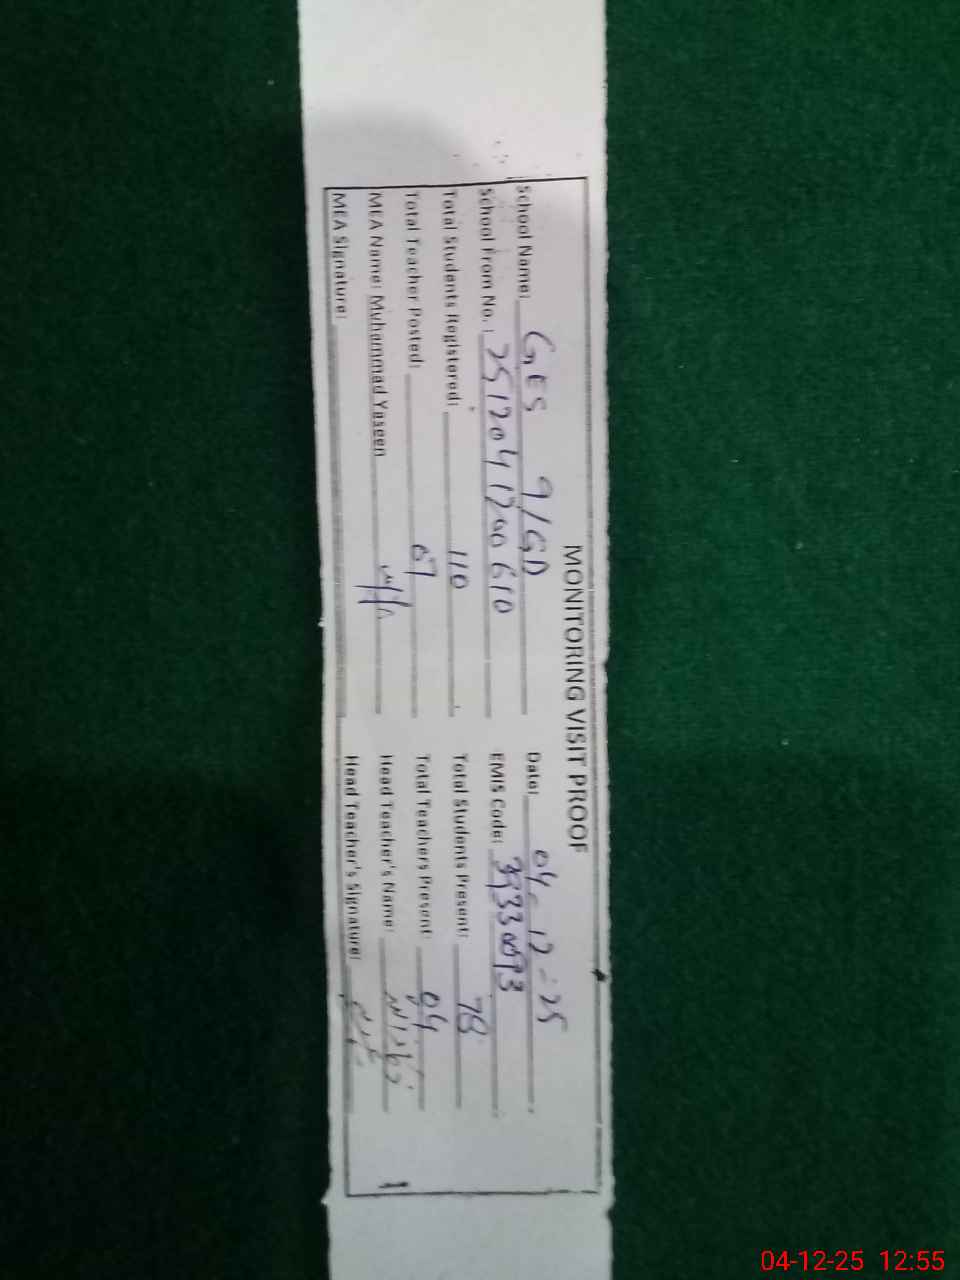 MONITORING VISIT PROOF
School Name: GES 9/GD Date: 04-12-25
School From No. : 2512041200610 EMIS Code:
Total Students Registered: 110 Total Students Present: 78
Total Teacher Posted: 07 Total Teachers Present: 04
MEA Name: Muhammad Yaseen Head Teacher's Name:
MEA Signature: Head Teacher's Signature:
04-12-25 12:55